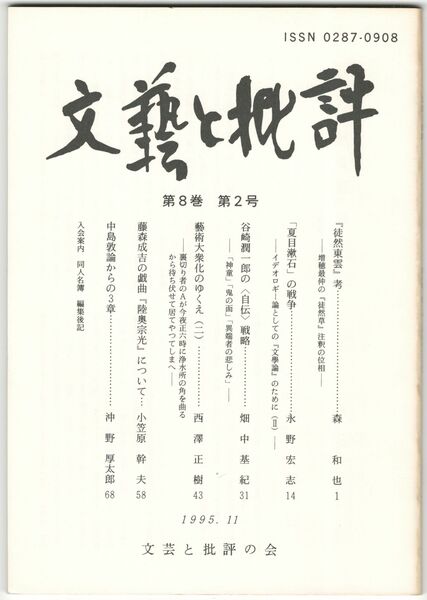 ISSN 0287-0908
文藝と批評
第8巻 第2号
『徒然東雲』考
――増穂最仲の『徒然草』注釈の位相――
森 和也 1
「夏目漱石」の戦争
――イデオロギー論としての『文學論』のために(Ⅱ)――
永野宏志 14
谷崎潤一郎の〈自伝〉戦略
――「神童」「鬼の面」「異端者の悲しみ」――
畑中基紀 31
藝術大衆化のゆくえ(二)
――裏切り者のAが今夜正六時に浄水所の角を曲る
から待ち伏せて居てやつてしまへ――
西澤正樹 43
藤森成吉の戯曲『陸奥宗光』について
小笠原幹夫 58
中島敦論からの3章
沖野厚太郎 68
入会案内 同人名簿 編集後記
1995.11
文芸と批評の会